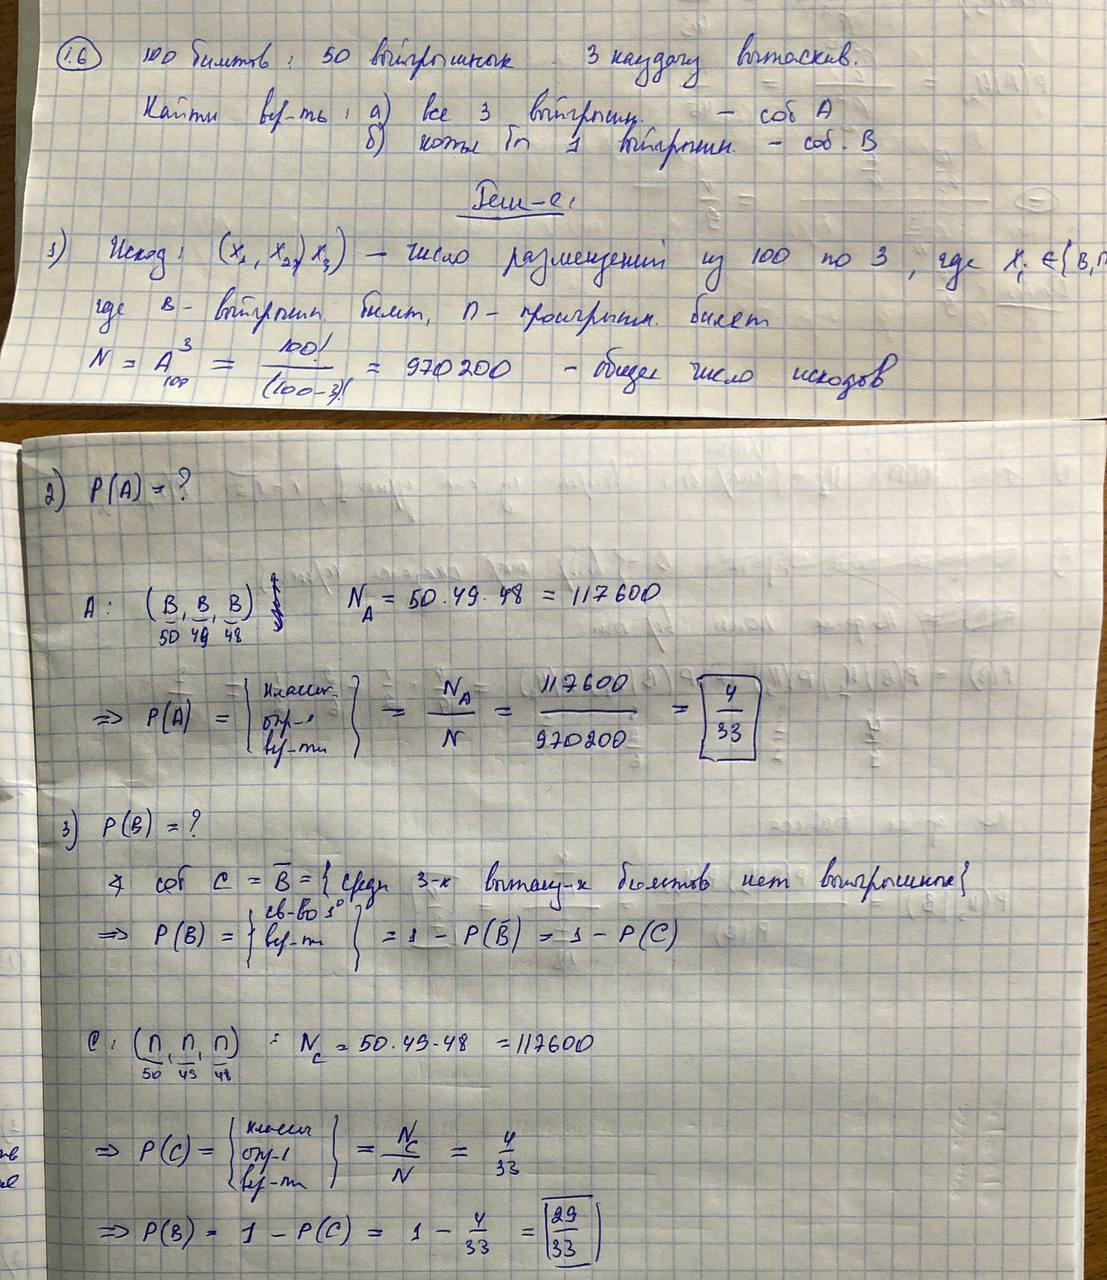 1.6 100 билетов: 50 выйгрышных. 3 наудачу вытаскив.
Найти вер-ть: а) все 3 выйгрышн. – соб A
б) хотя бы 1 выйгрышн. – соб. B
Реш-е:
1) Исход: (x₁, x₂, x₃) – число размещений из 100 по 3, где xᵢ ∈ {В, П
где В - выйгрышн. билет, П - проигрышн. билет
N = A³₁₀₀ = 100! / (100-3)! = 970200 – общее число исходов
2) P(A) = ?
A: (В, В, В) N_A = 50 · 49 · 48 = 117600
50 49 48
⇒ P(A) = { классич. опр-е вер-ти } = N_A / N = 117600 / 970200 = 4/33
3) P(B) = ?
соб C = B̄ = { среди 3-х вытащ-х билетов нет выигрышных }
⇒ P(B) = { св-во 1° вер-ти } = 1 - P(B̄) = 1 - P(C)
C: (П, П, П) : N_C = 50 · 49 · 48 = 117600
50 49 48
⇒ P(C) = { классич опр-е вер-ти } = N_C / N = 4/33
⇒ P(B) = 1 - P(C) = 1 - 4/33 = 29/33